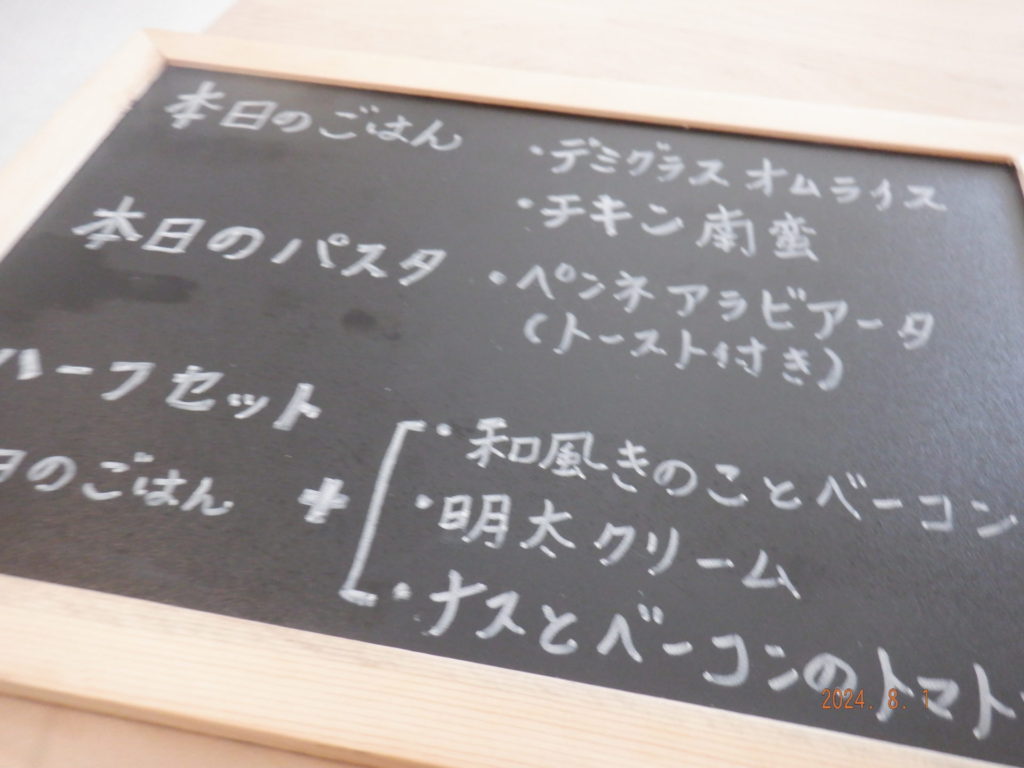 本日のごはん
・デミグラスオムライス
・チキン南蛮
本日のパスタ
・ペンネアラビアータ
(トースト付き)
ハーフセット
日のごはん +
・和風きのことベーコン
・明太クリーム
・ナスとベーコンのトマト
2024. 8. 1